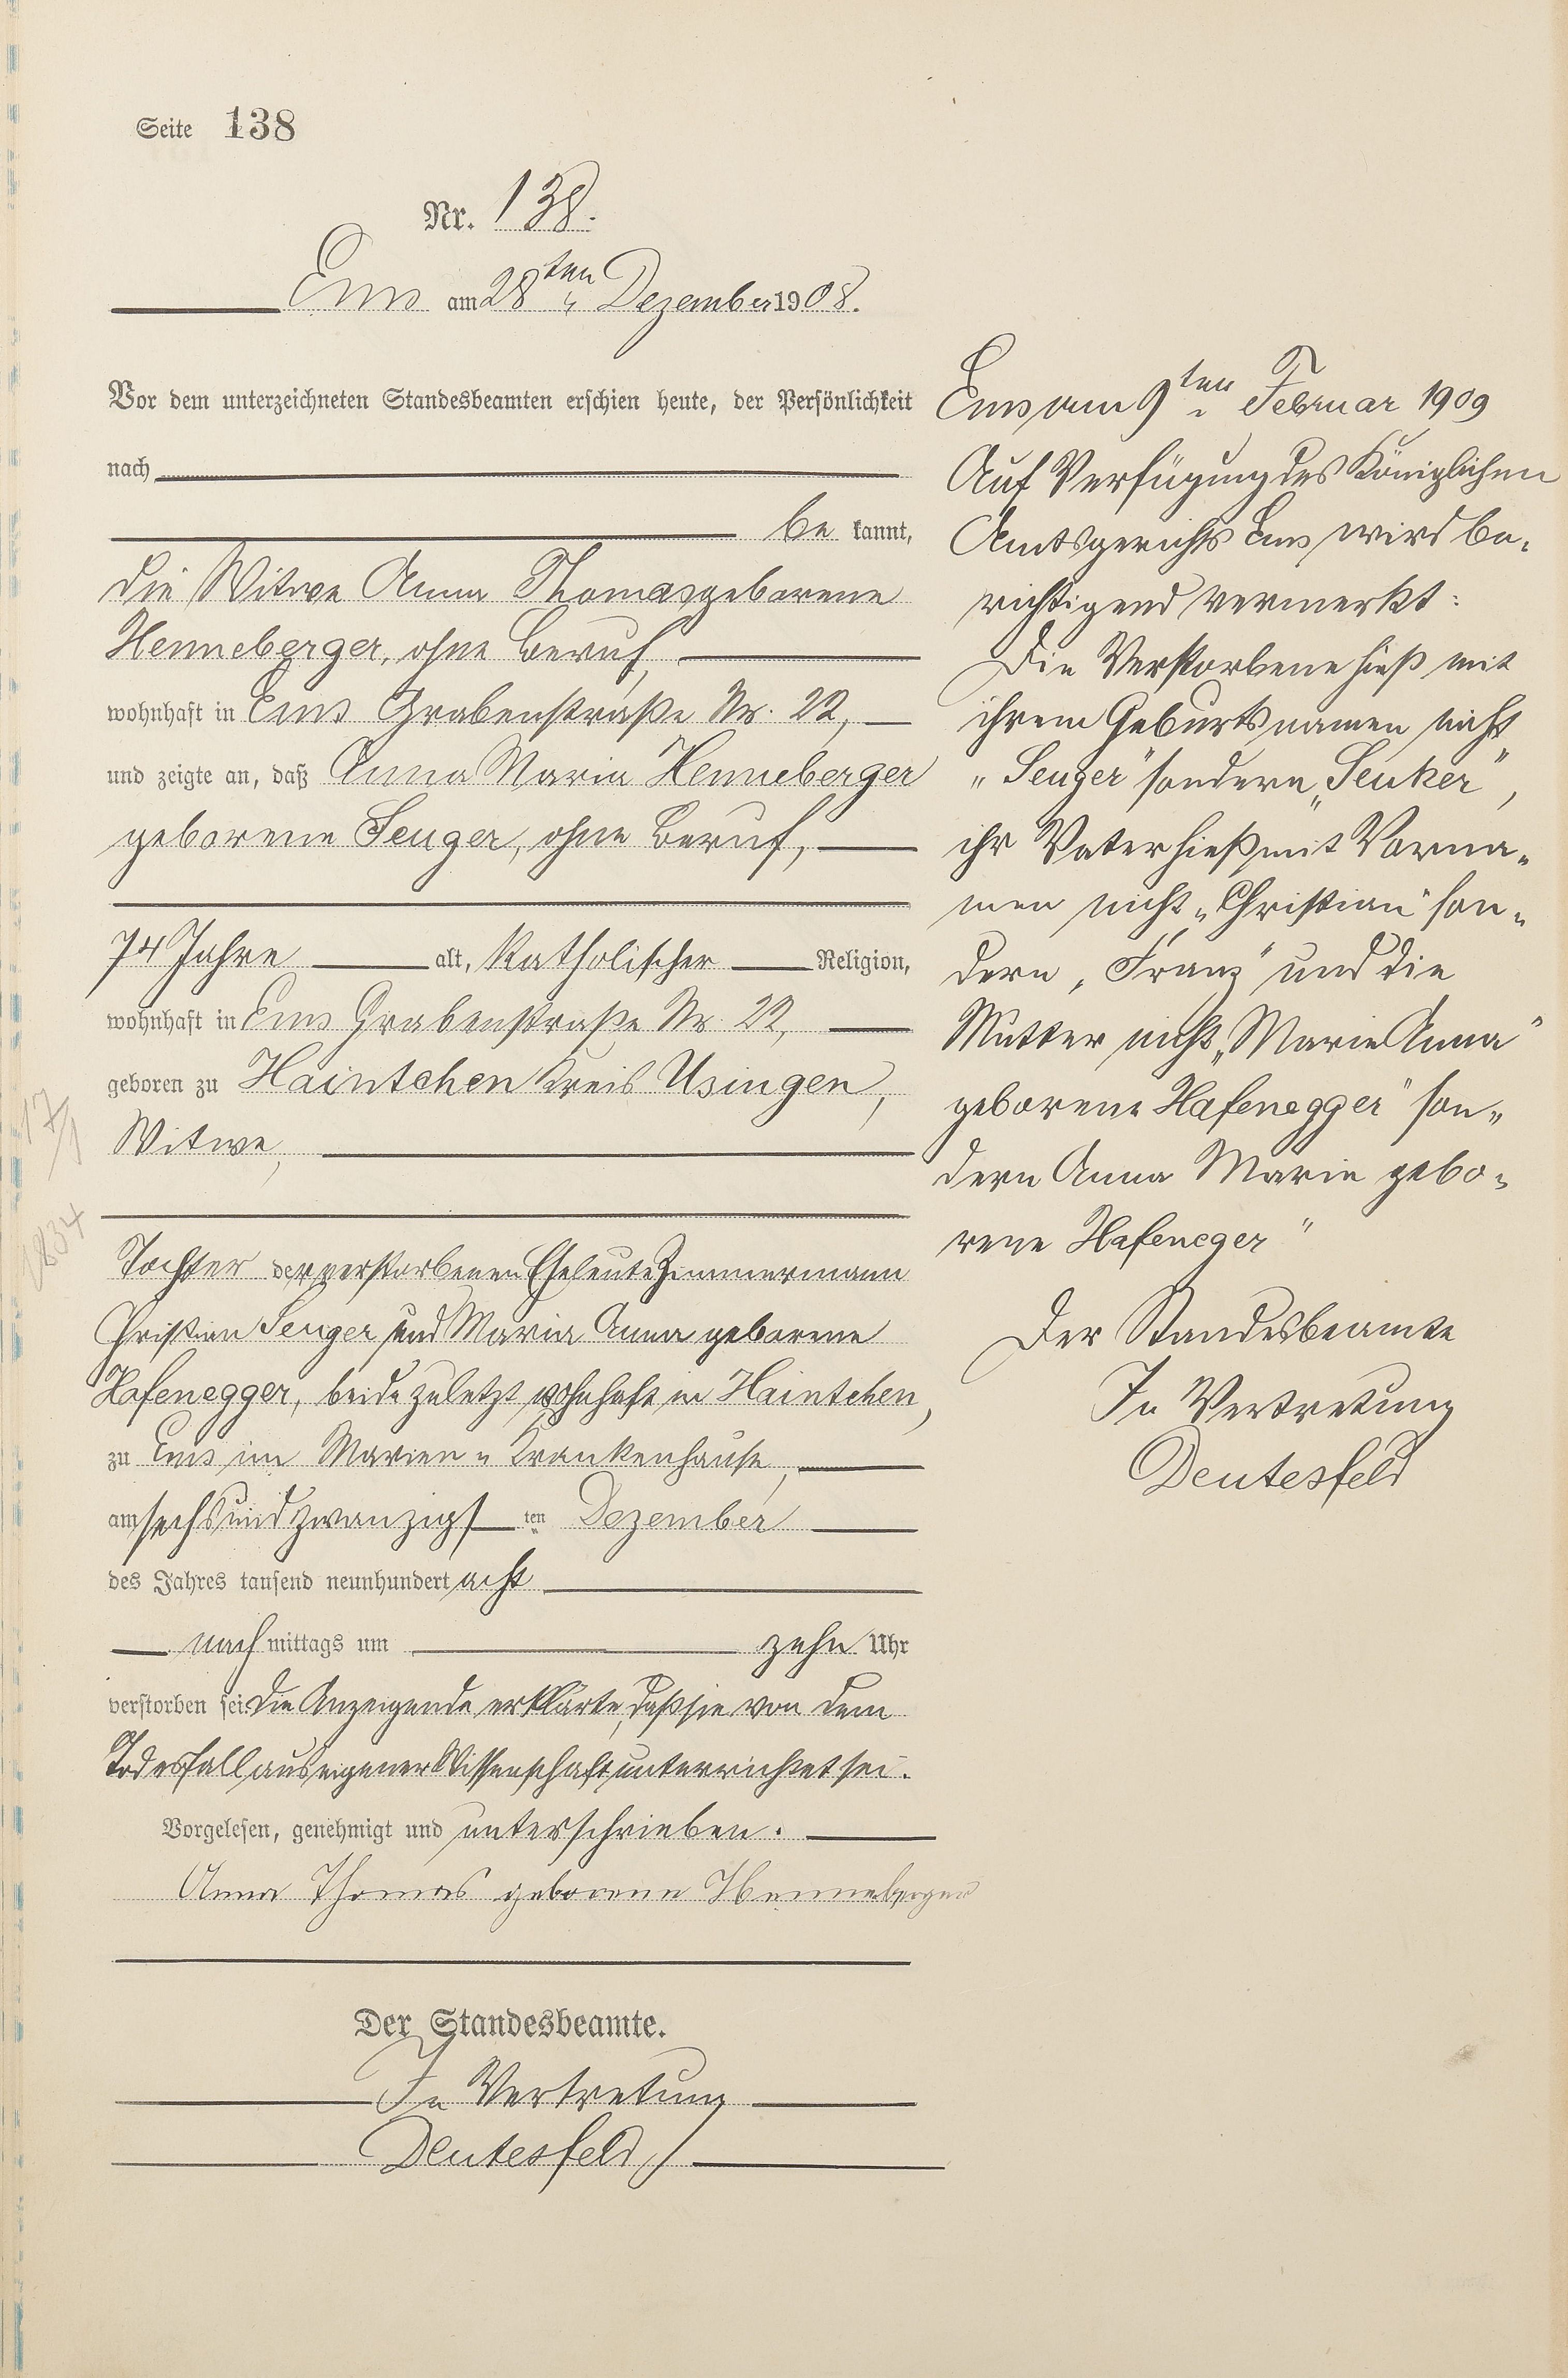 Seite 138
Nr. 138.
Ems am 28ten Dezember 1908.
Vor dem unterzeichneten Standesbeamten erschien heute, der Persönlichkeit
nach
be kannt,
die Witwe Anna Thomas geborene
Henneberger, ohne Beruf,
wohnhaft in Ems Grabenstraße Nr. 22,
und zeigte an, daß Anna Maria Henneberger
geborene Senger, ohne Beruf,
74 Jahre alt, katholischer Religion,
wohnhaft in Ems Grabenstraße Nr. 22,
geboren zu Haintchen Kreis Usingen,
Witwe,
17/1
1834
Tochter der verstorbenen Eheleute Zimmermann
Christian Senger und Maria Anna geborene
Hafenegger, beide zuletzt wohnhaft in Haintchen,
zu Ems im Marien-Krankenhause,
am sechsundzwanzigsten Dezember
des Jahres tausend neunhundert acht
nach mittags um zehn Uhr
verstorben sei. Die Anzeigende erklärte, daß sie von dem
Todesfall aus eigener Wissenschaft unterrichtet sei.
Vorgelesen, genehmigt und unterschrieben.
Anna Thomas geborene Henneberger
Der Standesbeamte.
In Vertretung
Deutesfeld
Ems am 9ten Februar 1909
Auf Verfügung des Königlichen
Amtsgerichts Ems wird be-
richtigend vermerkt:
Die Verstorbene hieß mit
ihrem Geburtsnamen nicht
„Senger" sondern „Senker",
ihr Vater hieß mit Vorna-
men nicht „Christian" son-
dern „Franz" und die
Mutter nicht „Maria Anna
geborene Hafenegger" son-
dern Anna Maria gebo-
rene Hafeneger"
Der Standesbeamte
In Vertretung
Deutesfeld